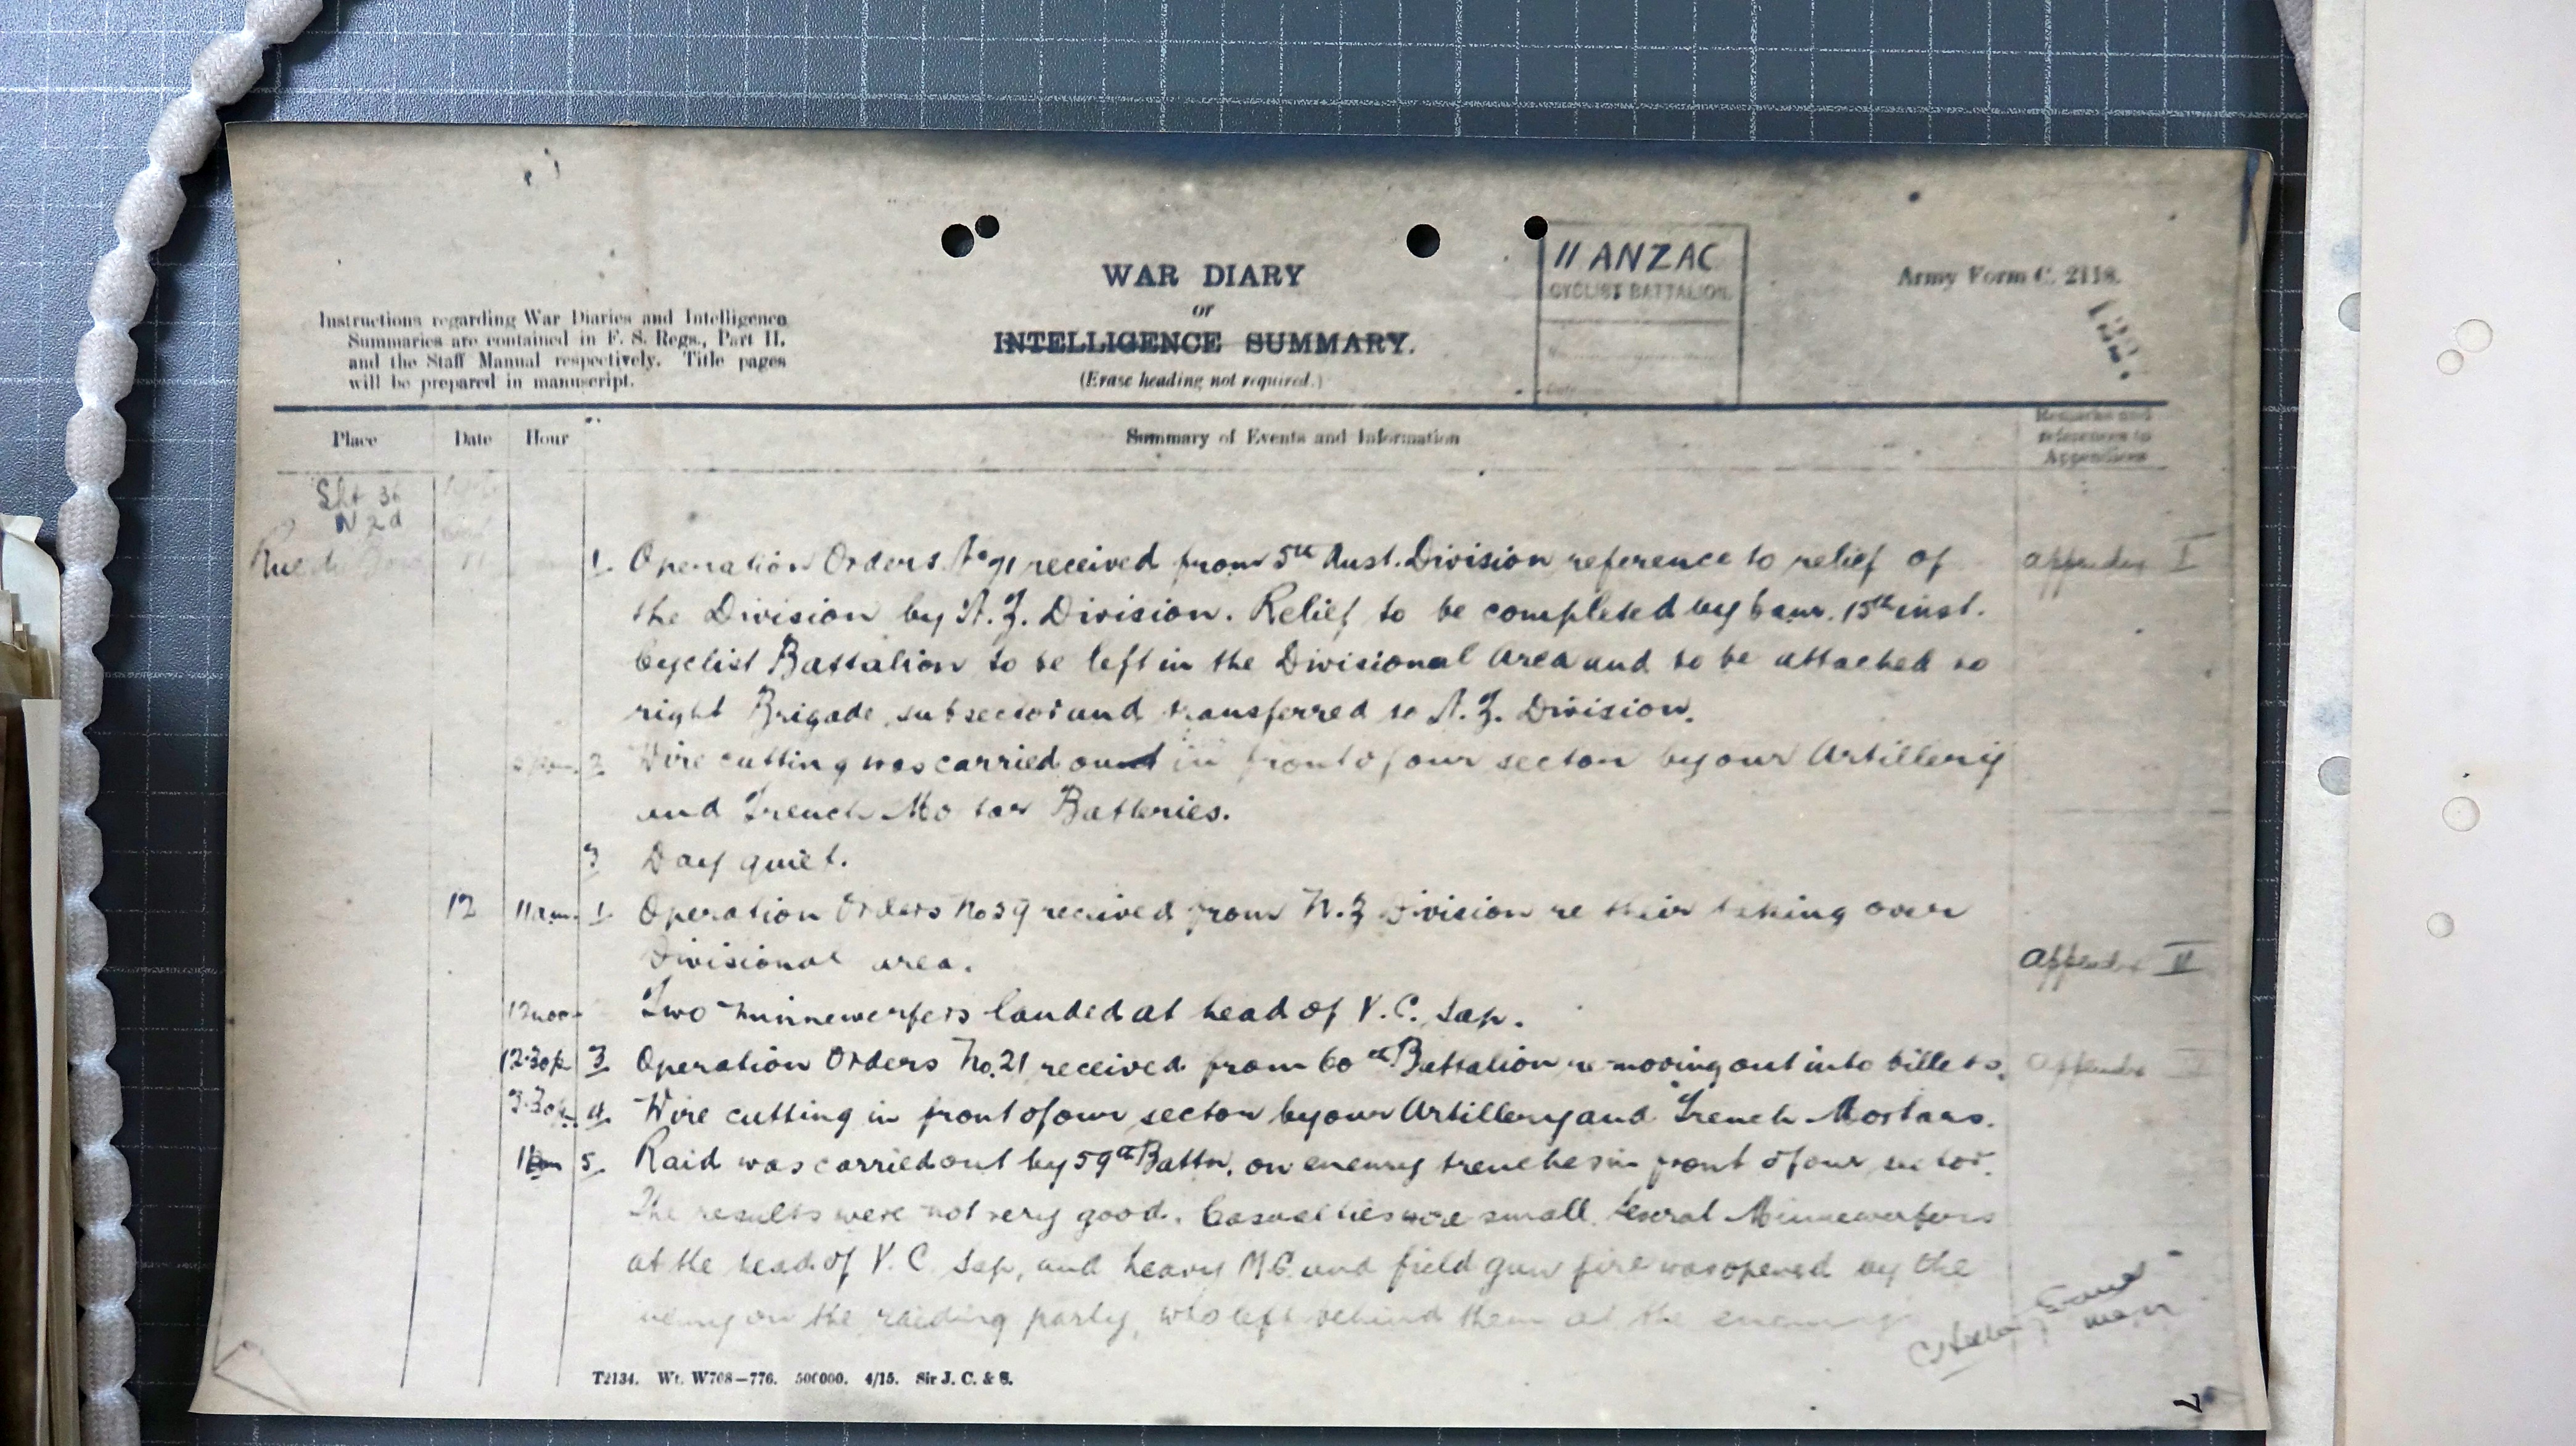 WAR DIARY
or
INTELLIGENCE SUMMARY.
(Erase heading not required.)
II ANZAC
CYCLIST BATTALION.
Army Form C. 2118.
122.
Instructions regarding War Diaries and Intelligence
Summaries are contained in F. S. Regs., Part II.
and the Staff Manual respectively. Title pages
will be prepared in manuscript.
Place Date Hour Summary of Events and Information Remarks and
references to
Appendices
Sht 36
N 2 d
Rue du Bois 11
1. Operation Orders No 91 received from 5th Aust. Division reference to relief of appendix I
the Division by N.Z. Division. Relief to be completed by 6 am. 15th inst.
Cyclist Battalion to be left in the Divisional area and to be attached to
right Brigade subsector and transferred to N.Z. Division.
2 Wire cutting was carried out in front of our sector by our Artillery
and Trench Mo tar Batteries.
3 Day quiet.
12 11am. 1. Operation Orders No 39 received from N.Z Division re their taking over
Divisional area. appendix II
12noon Two minnewerfers landed at head of V.C. Sap.
12.30p 3 Operation Orders No.21 received from 60th Battalion re moving out into billets. appendix
3.30p. 4. Wire cutting in front of our sector by our Artillery and Trench Mortars.
5. Raid was carried out by 59th Battn. on enemy trenches in front of our sector.
The results were not very good. Casualties were small. Several Minnewerfers
at the head of V.C. Sap, and heavy M.G. and field gun fire was opened by the
enemy on the raiding party, who left behind them at the enemy
T2134. Wt. W708—776. 500000. 4/15. Sir J. C. & S.